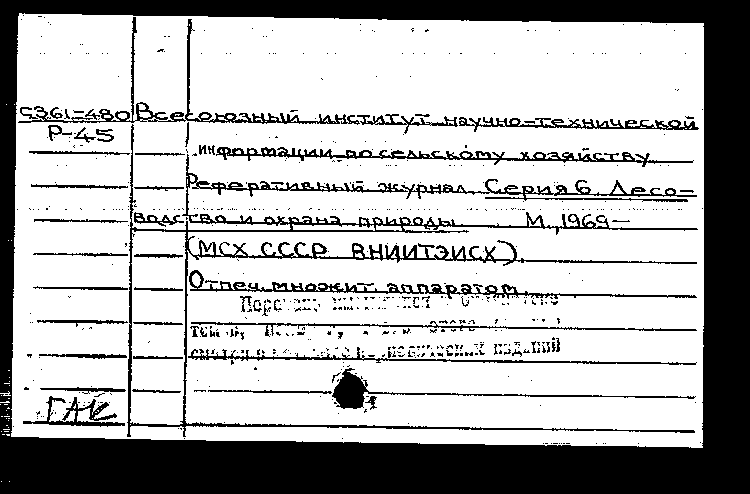 С361-480 Всесоюзный институт научно-технической
Р-45
информации по сельскому хозяйству
Реферативный журнал. Серия 6. Лесо-
водство и охрана природы. М., 1969-
(МСХ СССР ВНИИТЭИСХ).
Отпеч. множит. аппаратом.
этого
смотри в изданий
ГАК